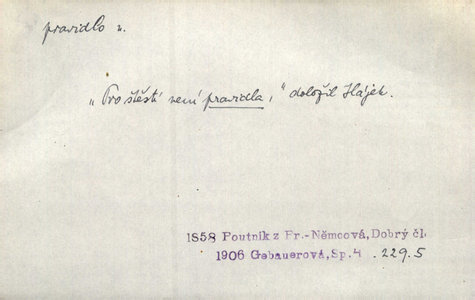 pravidlo n.
„Pro štěstí není pravidla,“ doložil Hájek.
1858 Poutník z Pr.-Němcová, Dobrý čl.
1906 Gebauerová, Sp.4 . 229.5